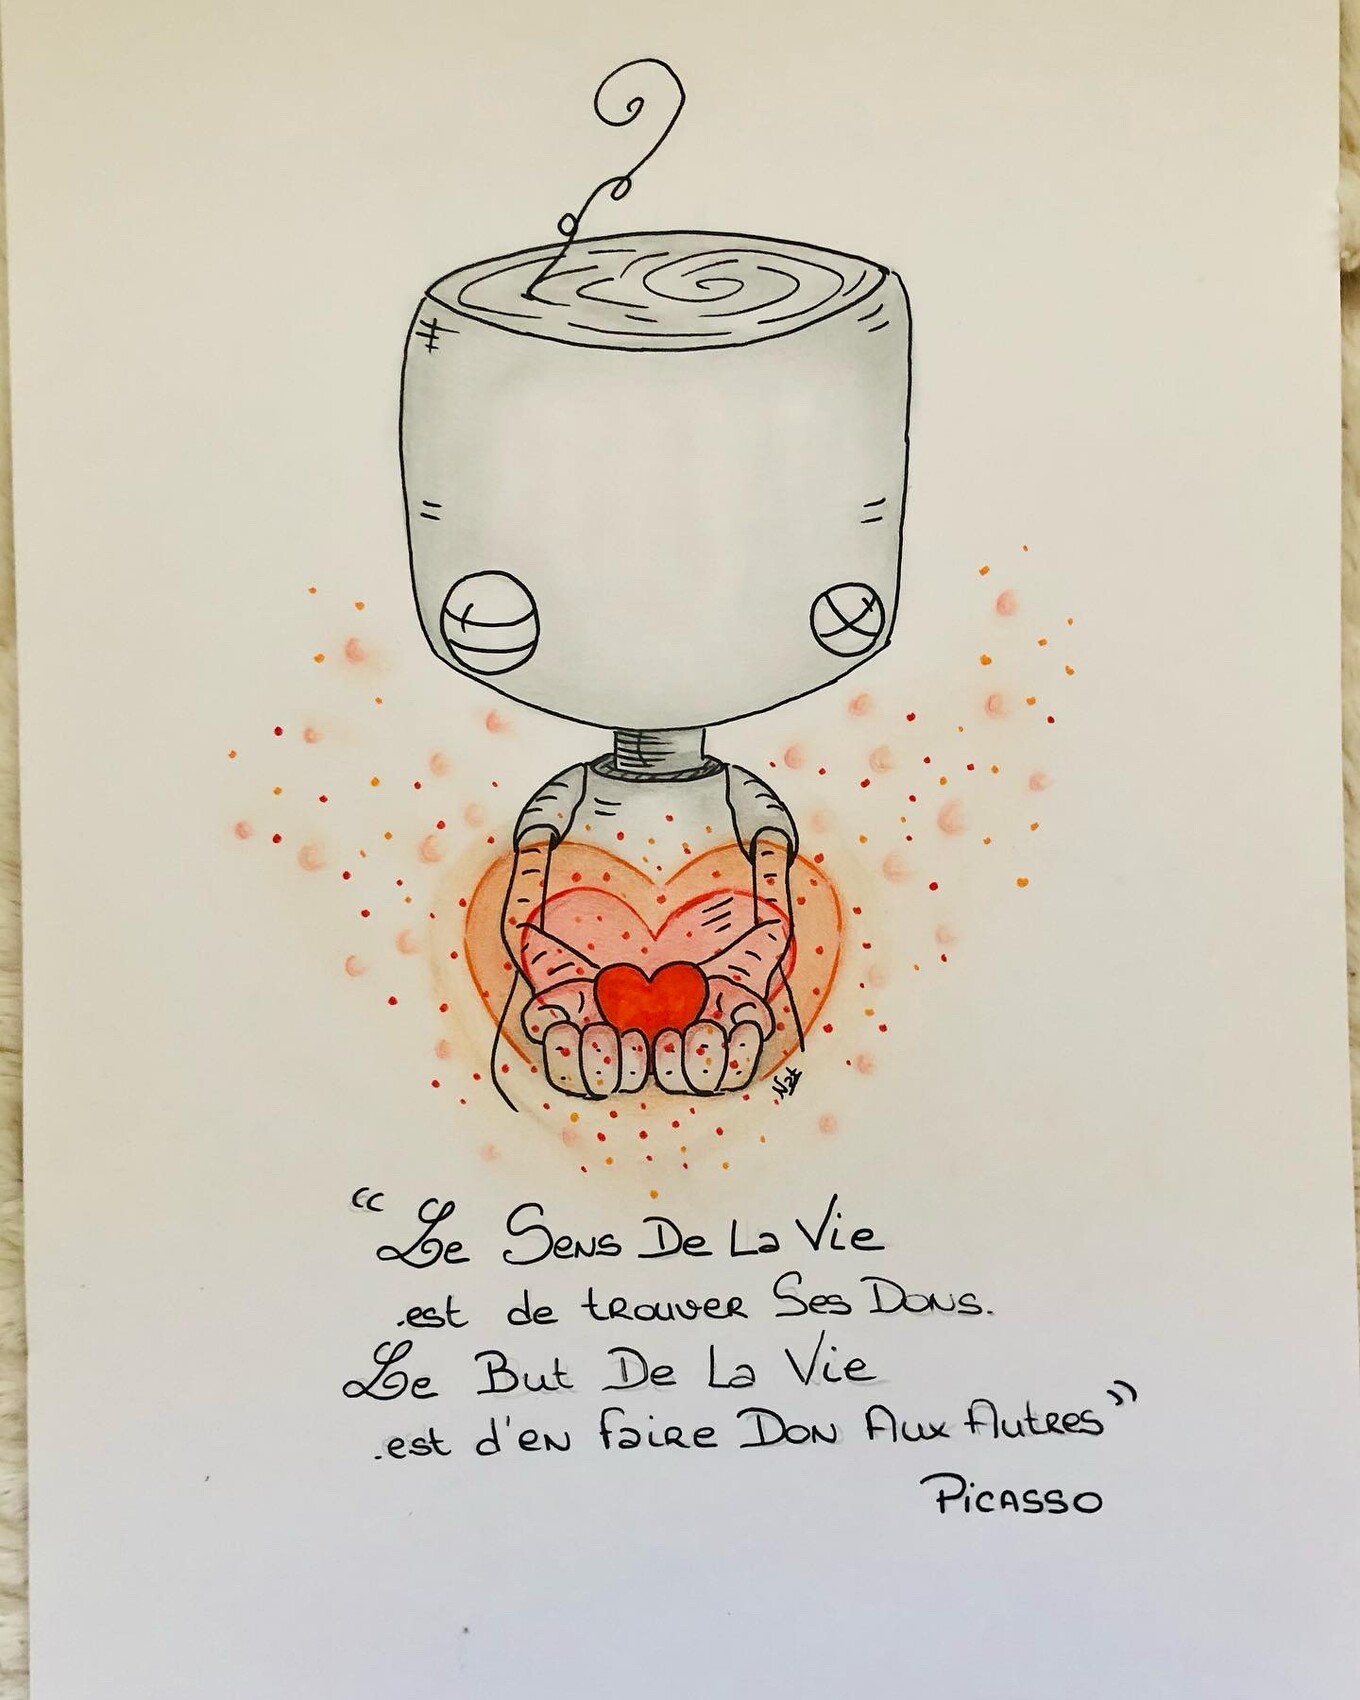 Nat
“Le Sens De La Vie
.est de trouver Ses Dons.
Le But De La Vie
.est d'en faire Don Aux Autres”
Picasso